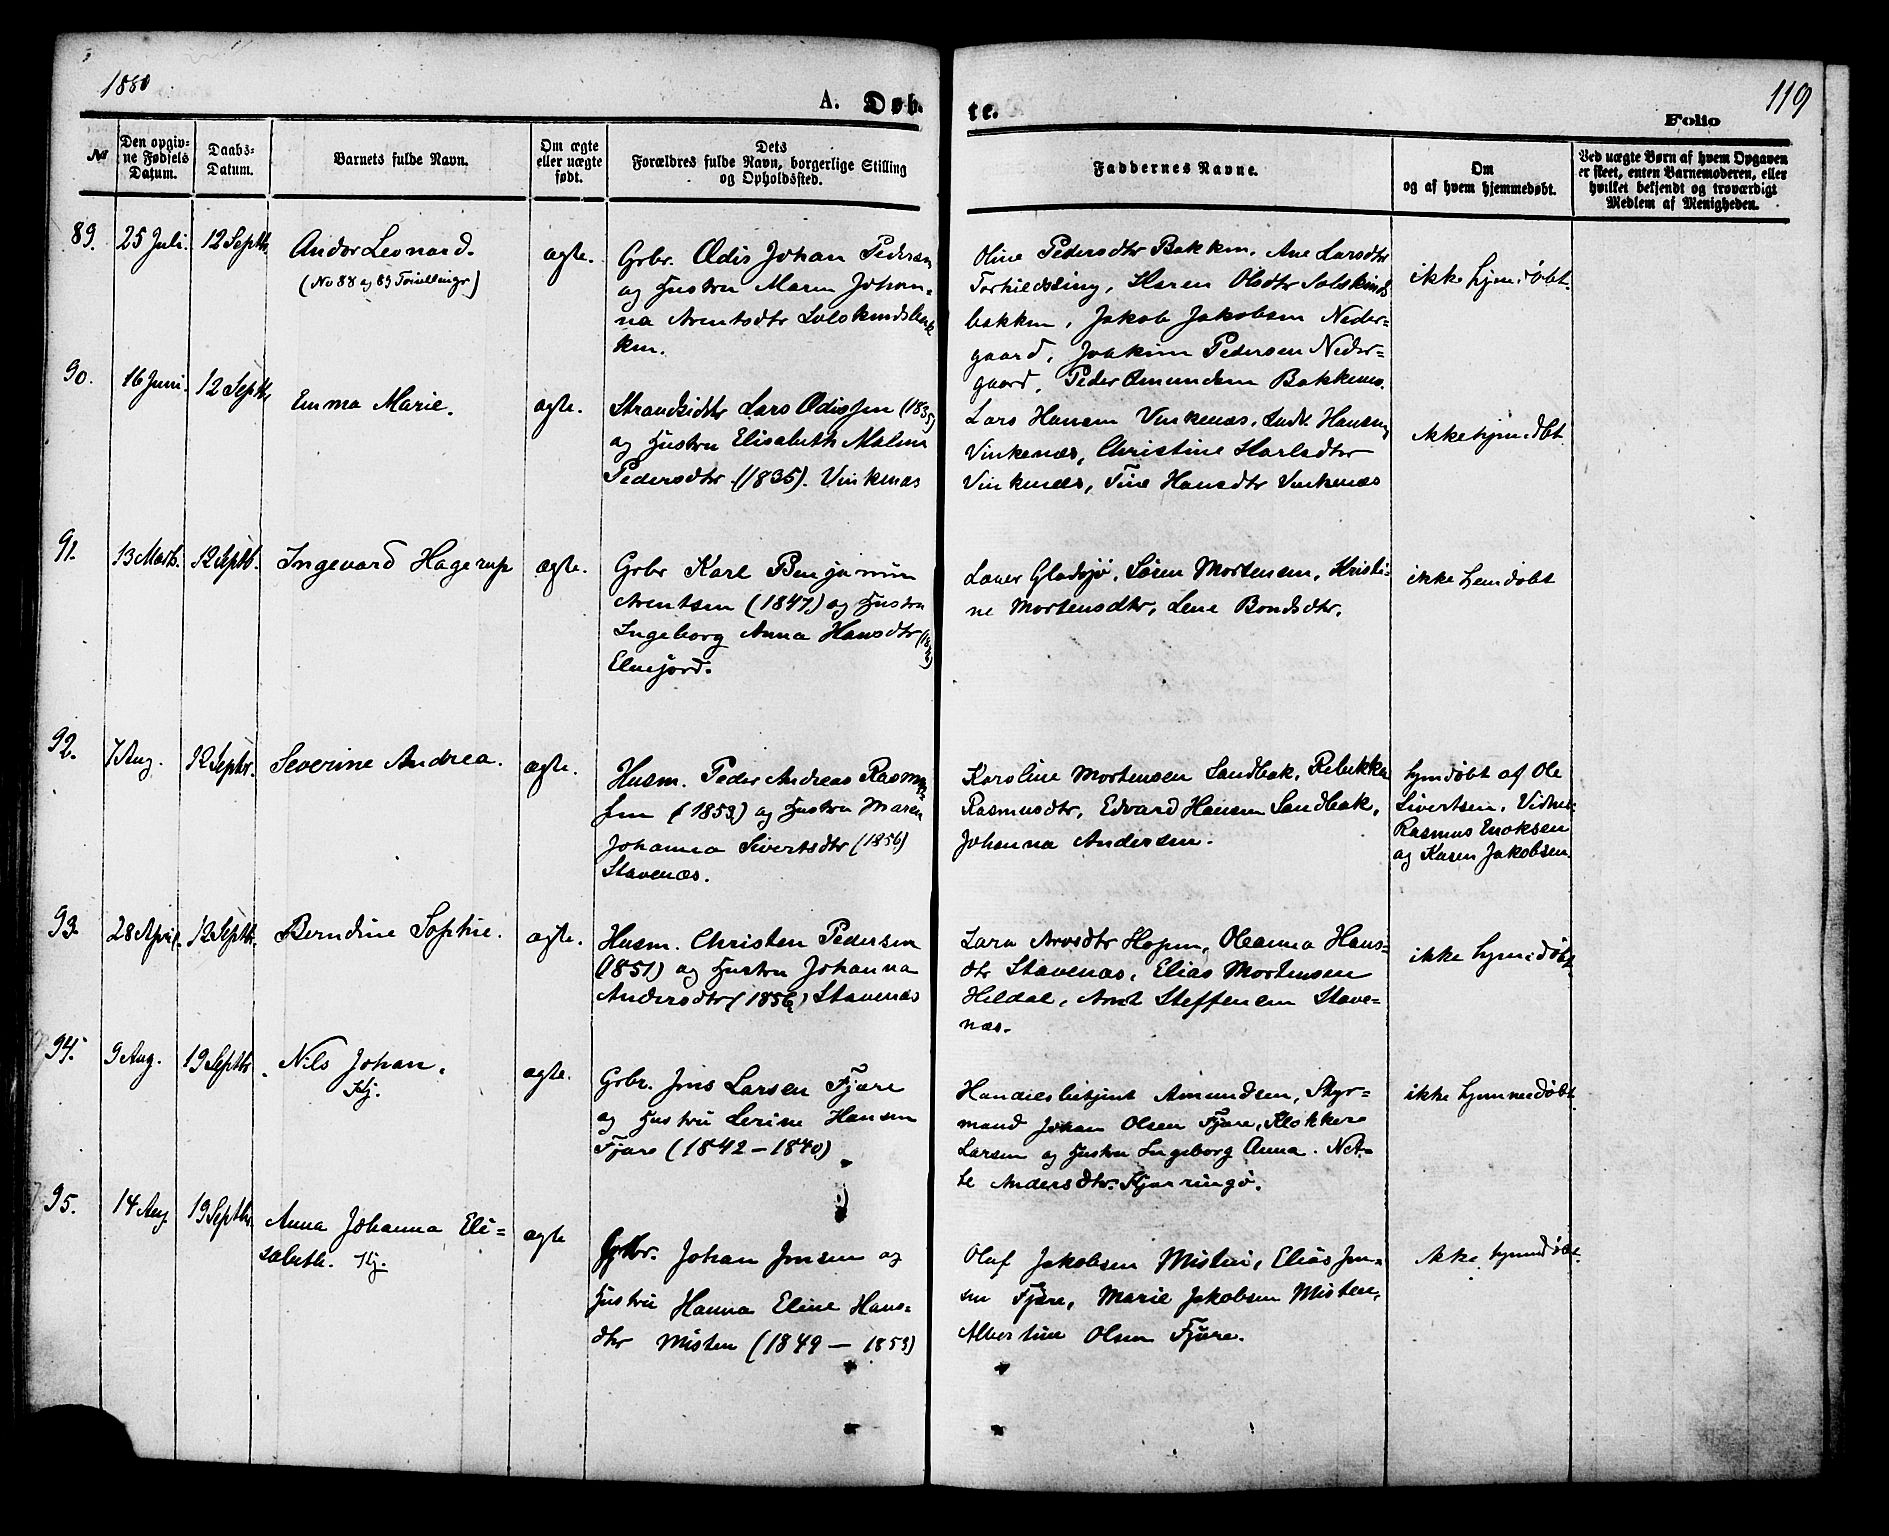 1880
119
A. Døb-
te.
Folio
№
Den opgiv-
ne Fødsels
Datum.
Daabs-
Datum.
Barnets fulde Navn.
Om ægte
eller uægte
født.
Dets
Forældres fulde Navn, borgerlige Stilling
og Opholdssted.
Faddernes Navne.
Om
og af hvem hjemmedøbt.
Ved uægte Børn af hvem Opgaven
er skeet, enten Barnemoderen, eller
hvilket bekjendt og troværdigt
Medlem af Menigheden.
89.
25 Juli.
12 Septbr
Andor Leonard.
(No 88 og 89 Tvillinger)
ægte.
Grbr. Ædis Johan Pedersen
og Hustru Maren Johan-
na Arentsdtr Solskindsbak-
ken.
Oline Pedersdtr Bakken, Ane Larsdtr
Karen Olsdtr Solskinds
bakken, Jakob Jakobsen Neder-
gaard, Joakim Pedersen Neder-
gaard, Peder Amundsen Bakkene.
ikke hjemdøbt.
90.
16 Juni.
12 Septb.
Emma Marie.
ægte.
Strandsidder Lars Ædissen (1835)
og Hustru Elisabeth Malene
Pedersdtr (1835). Vinkenæs
Lars Hansen Vinkenæs, Hansen
Vinkenæs, Christine Karlsdtr
Vinkenæs, Tine Hansdtr Vinkenæs
ikke hjemdøbt
91.
13 Marts.
12 Septb.
Ingevard Hagerup
ægte.
Grbr Karl Benjamin
Arentsen (1847) og Hustru
Ingeborg Anna Hansdtr
Elvefjord.
Laver Gladsjø, Søren Mortensen, Kristi-
ne Mortensdtr, Lene Bondsdtr.
ikke hjemdøbt
92.
7 Aug.
12 Septbr.
Severine Andrea.
ægte.
Husm. Peder Andreas Rasmus-
sen (1853) og Hustru Maren
Johanna Sivertsdtr (1856)
Stavenæs.
Karoline Mortensen Sandbak, Rebekka
Rasmusdtr, Edvard Hansen Sandbak,
Johanna Andersen.
hjemdøbt af Ole
Sivertsen. Vidner
Rasmus Enoksen
og Karen Jakobsen.
93.
28 April.
12 Septbr.
Berndine Sophie.
ægte.
Husm. Christen Pedersen
(1851) og Hustru Johanna
Andersdtr (1856) Stavenæs
Lara Arosdtr Hopen, Oleanna Hans-
dtr Stavenæs, Elias Mortensen
Hildal, Arnt Steffensen Stave-
næs.
ikke hjemdøbt
94.
9 Aug.
19 Septbr
Nils Johan.
Kj.
ægte.
Grbr. Jens Larsen Fjære
og Hustru Serine Hansen
Fjære (1842 – 1840)
Handelsbetjent Amundsen, Styr-
mand Johan Olsen Fjære, Klokker
Larsen og Hustru Ingeborg Anna. Net-
te Andersdtr. Kjærringø.
ikke hjemmedøbt.
95.
14 Aug.
19 Septbr.
Anna Johanna Eli-
sabeth. Kj.
ægte
Grbr. Johan Jensen og
Hustru Hanna Eline Hans-
dtr Misten (1849 – 1853)
Oluf Jakobsen Misten, Elias Jen-
sen Fjære, Marie Jakobsen Misten,
Albertine Olsen Fjære.
ikke hjemdøbt.